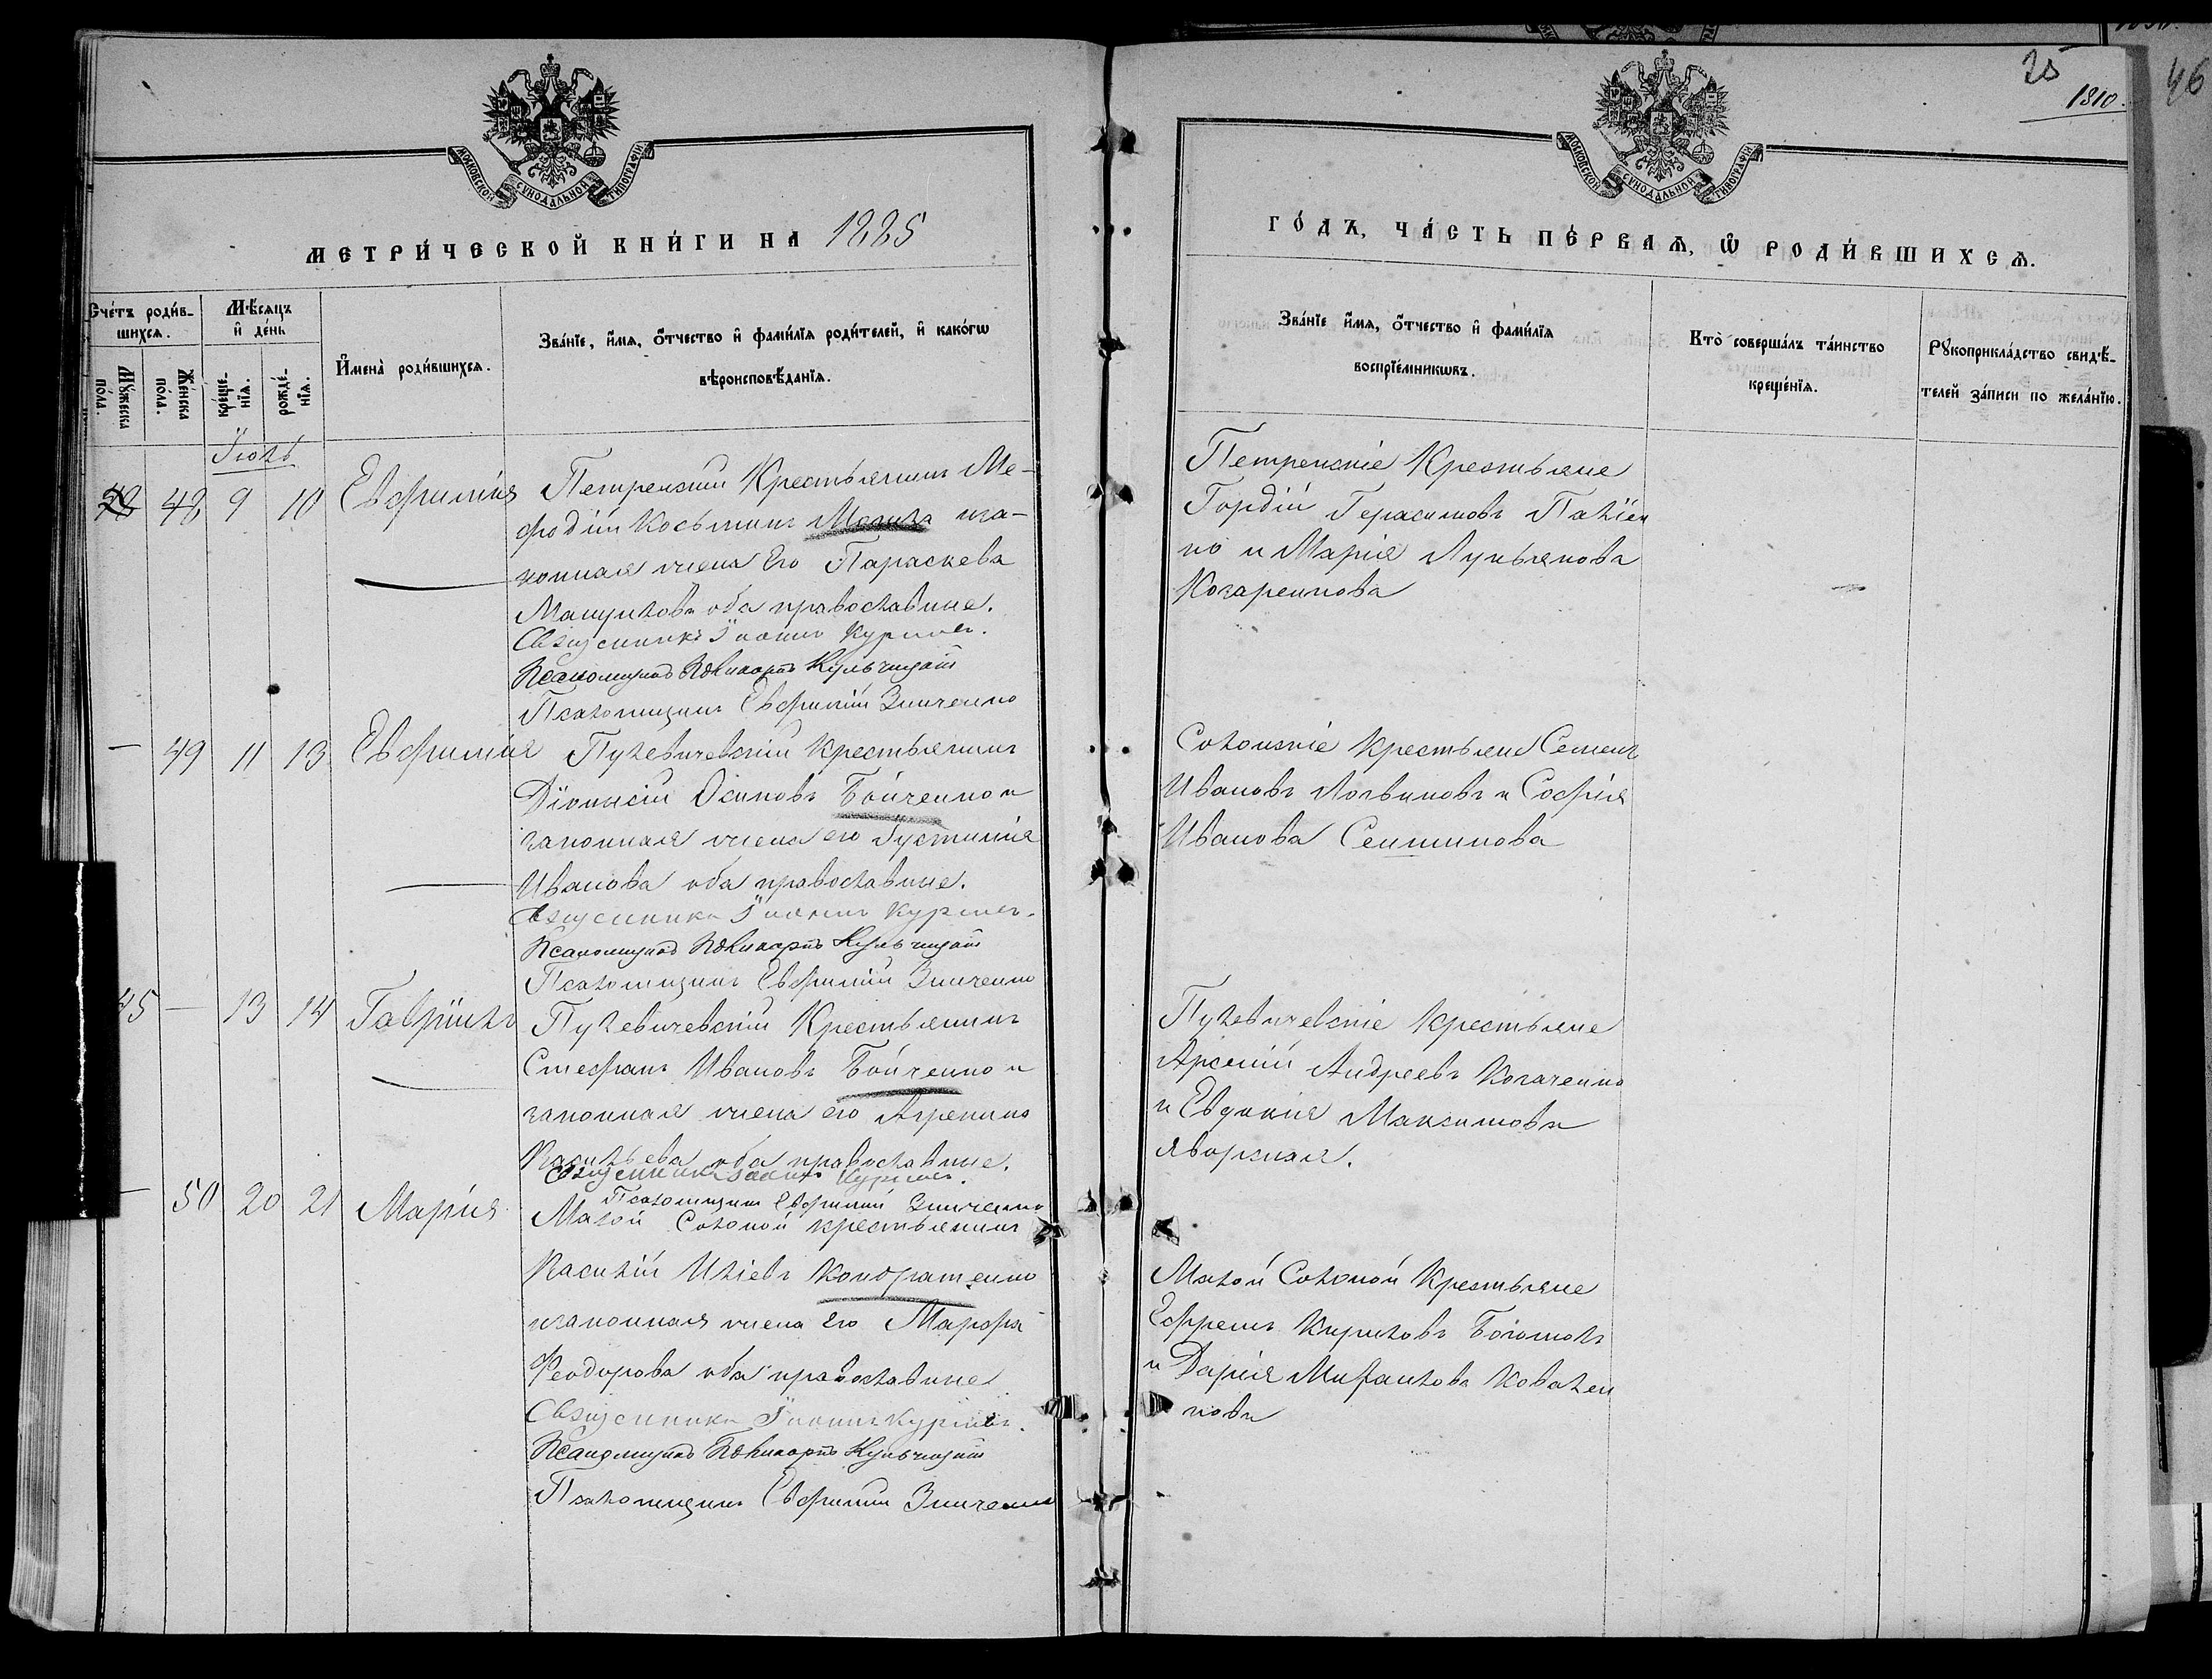 25
1810.
46
МОСКОВСКОЙ СУНОДАЛЬНОЙ ТИПОГРАФІИ
МОСКОВСКОЙ СУНОДАЛЬНОЙ ТИПОГРАФІИ
МЕТРИ́ЧЕСКОЙ КНИ́ГИ НА 1885
ГО́ДЪ, ЧА́СТЬ ПЕ́РВАѦ, Ѡ҆ РОДИ́ВШИХСѦ.
Сче́тъ роди́в-
шихсѧ.
Мꙋ́жеска по́ла.
Же́нска по́ла.
Мѣ́сѧцъ
и҆ де́нь
креще́-
нїѧ.
рожде́-
нїѧ.
И҆мена̀ роди́вшихсѧ.
Зва́нїе, и҆́мѧ, ѻ҆́тчество и҆ фами́лїѧ роди́телей, и҆ како́гѡ
вѣроисповѣ́данїѧ.
Зва́нїе и҆́мѧ, ѻ҆́тчество и҆ фами́лїѧ
воспрїе́мникѡвъ.
Кто̀ соверша́лъ та́инство
креще́нїѧ.
Рꙋкоприкла́дство свидѣ́-
телей за́писи по жела́нїю.
Іюль
48 9 10 Евфимія Петренскій Крестьянинъ Ме-
фодій Косьминъ за-
конная жена Его Параскева
оба православные.
Священникъ Іоаннъ
Псаломщикъ Поликарпъ
Псаломщикъ Евфимій Зинченко
Петренскіе Крестьяне
Гордій Герасимовъ
но и Марія Лукьянова
— 49 11 13 Евфимія Пулевичевскій Крестьянинъ
Діонисій Осиповъ Бойченко и
законная жена его Іустинія
Иванова оба православные.
Священникъ Іоаннъ
Псаломщикъ Поликарпъ
Псаломщикъ Евфимій Зинченко
Соколскіе Крестьяне Семенъ
Ивановъ Логвиновъ и Софія
Иванова
45 — 13 14 Гавріилъ Пулевичевскій Крестьянинъ
Стефанъ Ивановъ Бойченко и
законная жена его
Васильева оба православные.
Священникъ Іоаннъ
Псаломщикъ Евфимій Зинченко
Пулевичевскіе Крестьяне
Арсеній Андреевъ
и Евдокія Максимова
Яворская.
— 50 20 21 Марія Малой Соколой крестьянинъ
Василій Иліевъ Кондратенко
и законная жена Его Марфа
Феодорова оба православные
Священникъ Іоаннъ
Псаломщикъ Поликарпъ
Псаломщикъ Евфимій Зинченко
Малой Соколой Крестьяне
Ефремъ Кириловъ Богомолъ
и Дарія Михаилова Ковален
кова